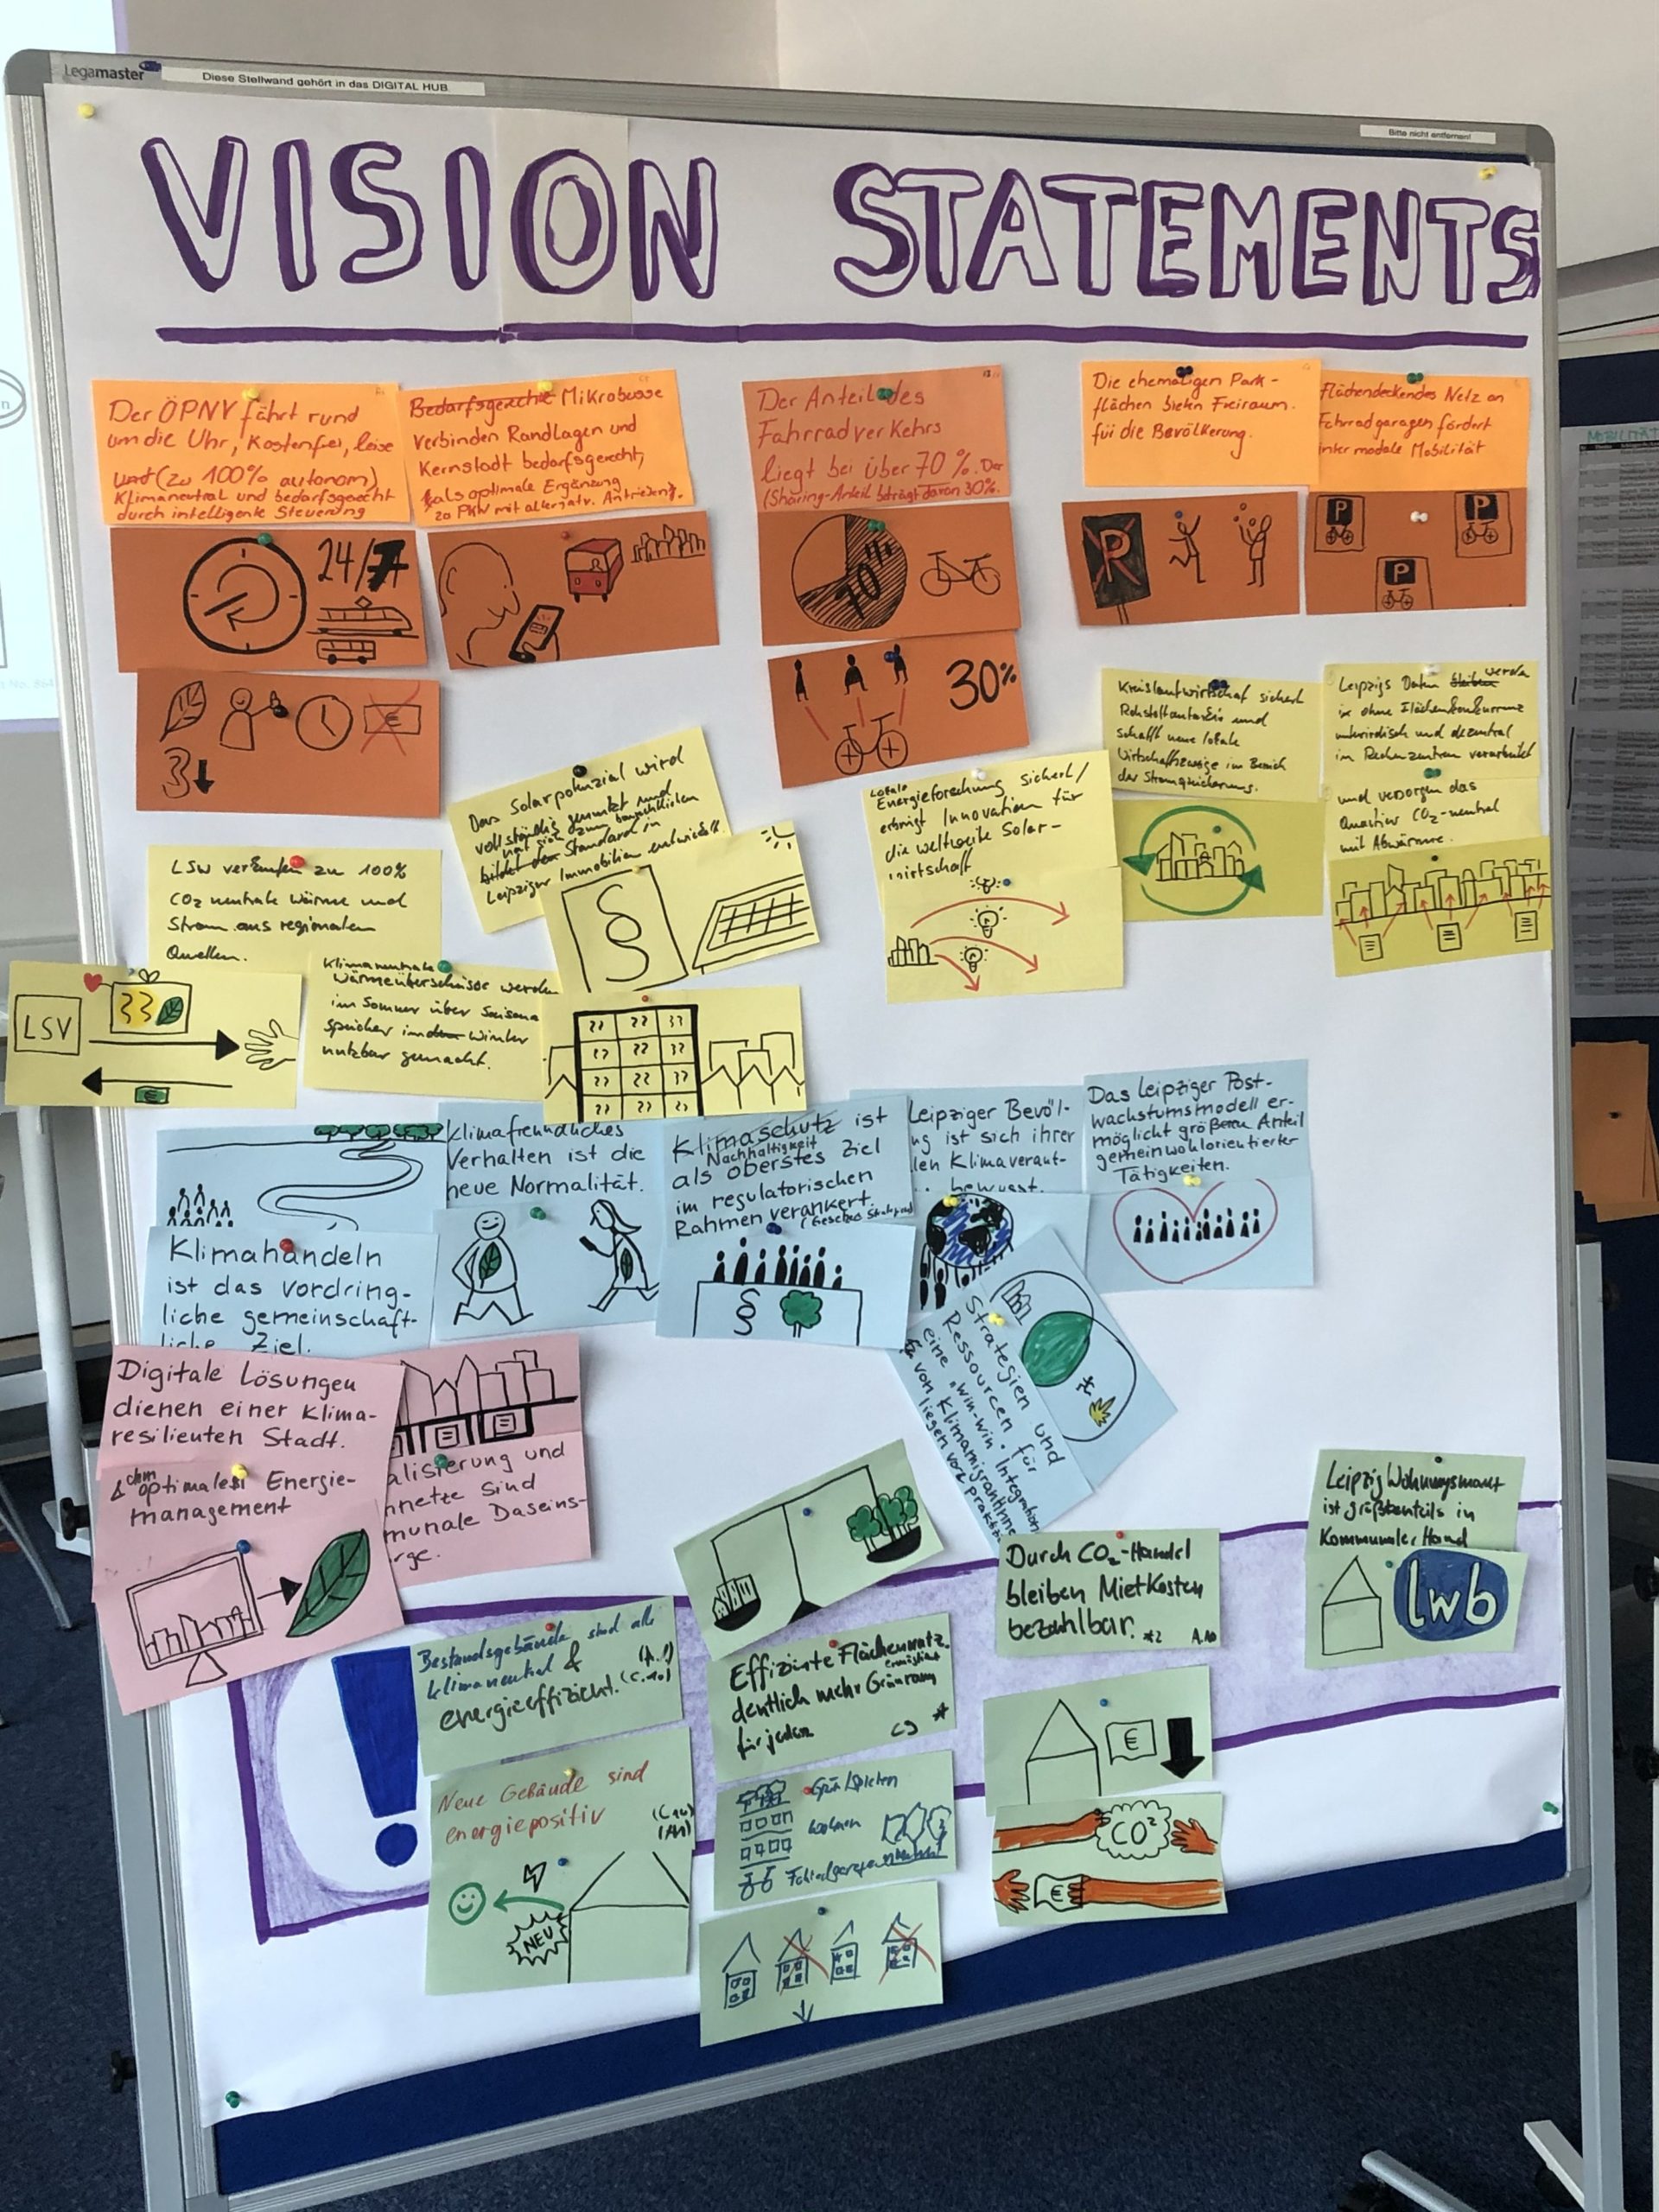 Legamaster
Diese Stellwand gehört in das DIGITAL HUB.
Bitte nicht entfernen!
VISION STATEMENTS
Der ÖPNV fährt rund
um die Uhr, kostenfrei, leise
und (zu 100% autonom)
Klimaneutral und bedarfsgerecht
durch intelligente Steuerung
24/7
3
€
Bedarfsgerechte Mikrobusse
verbinden Randlagen und
Kernstadt bedarfsgerecht,
als optimale Ergänzung
zo PKW mit alternativ. Antrieben.
Der Anteil des
Fahrradverkehrs
liegt bei über 70%. Der
(Sharing-Anteil beträgt davon 30%.
70%
30%
Die ehemaligen Park-
flächen bieten Freiraum
für die Bevölkerung.
P
Flächendeckendes Netz an
Fahrradgaragen fördert
inter modale Mobilität
P
P
P
Kreislaufwirtschaf sichert
Rohstoffautarkie und
schafft neue lokale
Wirtschaftszweige im Bereich
der Stromspeicherung.
Leipzigs Daten bleiben werden
ohne Flächenkonkurrenz
unterirdisch und dezentral
im Rechenzentren verarbeitet
und versorgen das
Quartier CO2-neutral
mit Abwärme.
Das Solarpotenzial wird
vollständig genutzt und
hat sich zum baurechtlichen
bildet den Standard in
Leipziger Immobilien entwickelt.
§
Lokale
Energieforschung sichert/
erbringt Innovation für
die weltweite Solar-
wirtschaft
LSW verkaufen zu 100%
CO2 neutrale Wärme und
Strom aus regionalen
Quellen.
LSV
Klimaneutrale
Wärmeüberschüsse werden
im Sommer über Saison
speicher in den Winter
nutzbar gemacht.
Klimahandeln
ist das vordring-
liche gemeinschaft-
liche Ziel.
Klimafreundliches
Verhalten ist die
neue Normalität.
Klimaschutz ist
Nachhaltigkeit
als oberstes Ziel
im regulatorischen
Rahmen verankert.
§
Leipziger Bevöl-
ng ist sich ihrer
len Klimaverant-
bewusst.
Das Leipziger Post-
wachstumsmodell er-
möglicht größeren Anteil
gemeinwohlorientierter
Tätigkeiten.
Strategien und
Ressourcen für
eine "win-win" Integration
von KlimamigrantInnen
liegen vor
Digitale Lösungen
dienen einer Klima-
resilienten Stadt.
& dem optimalen Energie-
management
alisierung und
nnetze sind
munale Daseins-
rge.
Bestandsgebäude sind alle
klimaneutral &
energieeffizient.
!
Neue Gebäude sind
energiepositiv
NEU
Effiziente Flächennutz.
ermöglicht
deutlich mehr Grünraum
für jeden
C9 *
Grün/Spielen
wohnen
Durch CO2-Handel
bleiben Mietkosten
bezahlbar. *2 A.10
€
CO2
€
Leipzig Wohnungsmarkt
ist größtenteils in
Kommunaler Hand
lwb